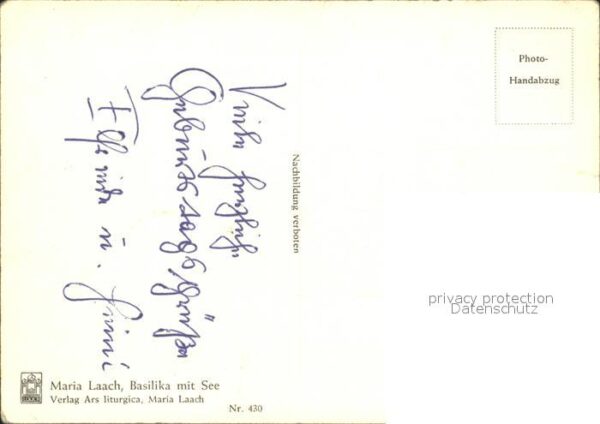 Viele herzliche
Geburtstagsgrüße
u.
Photo-
Handabzug
Nachbildung verboten
privacy protection
Datenschutz
Maria Laach, Basilika mit See
Verlag Ars liturgica, Maria Laach
Nr. 430